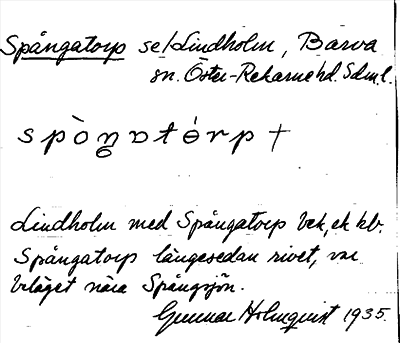 Spångatorp se/Lindholm, Barva
sn. Öster-Rekarne hd. Sdml.
spòŋɒtórp †
Lindholm med Spångatorp bek, ek kb.
Spångatorp längesedan rivet, var
beläget nära Spångsjön.
Gunnar Holmquist 1935.